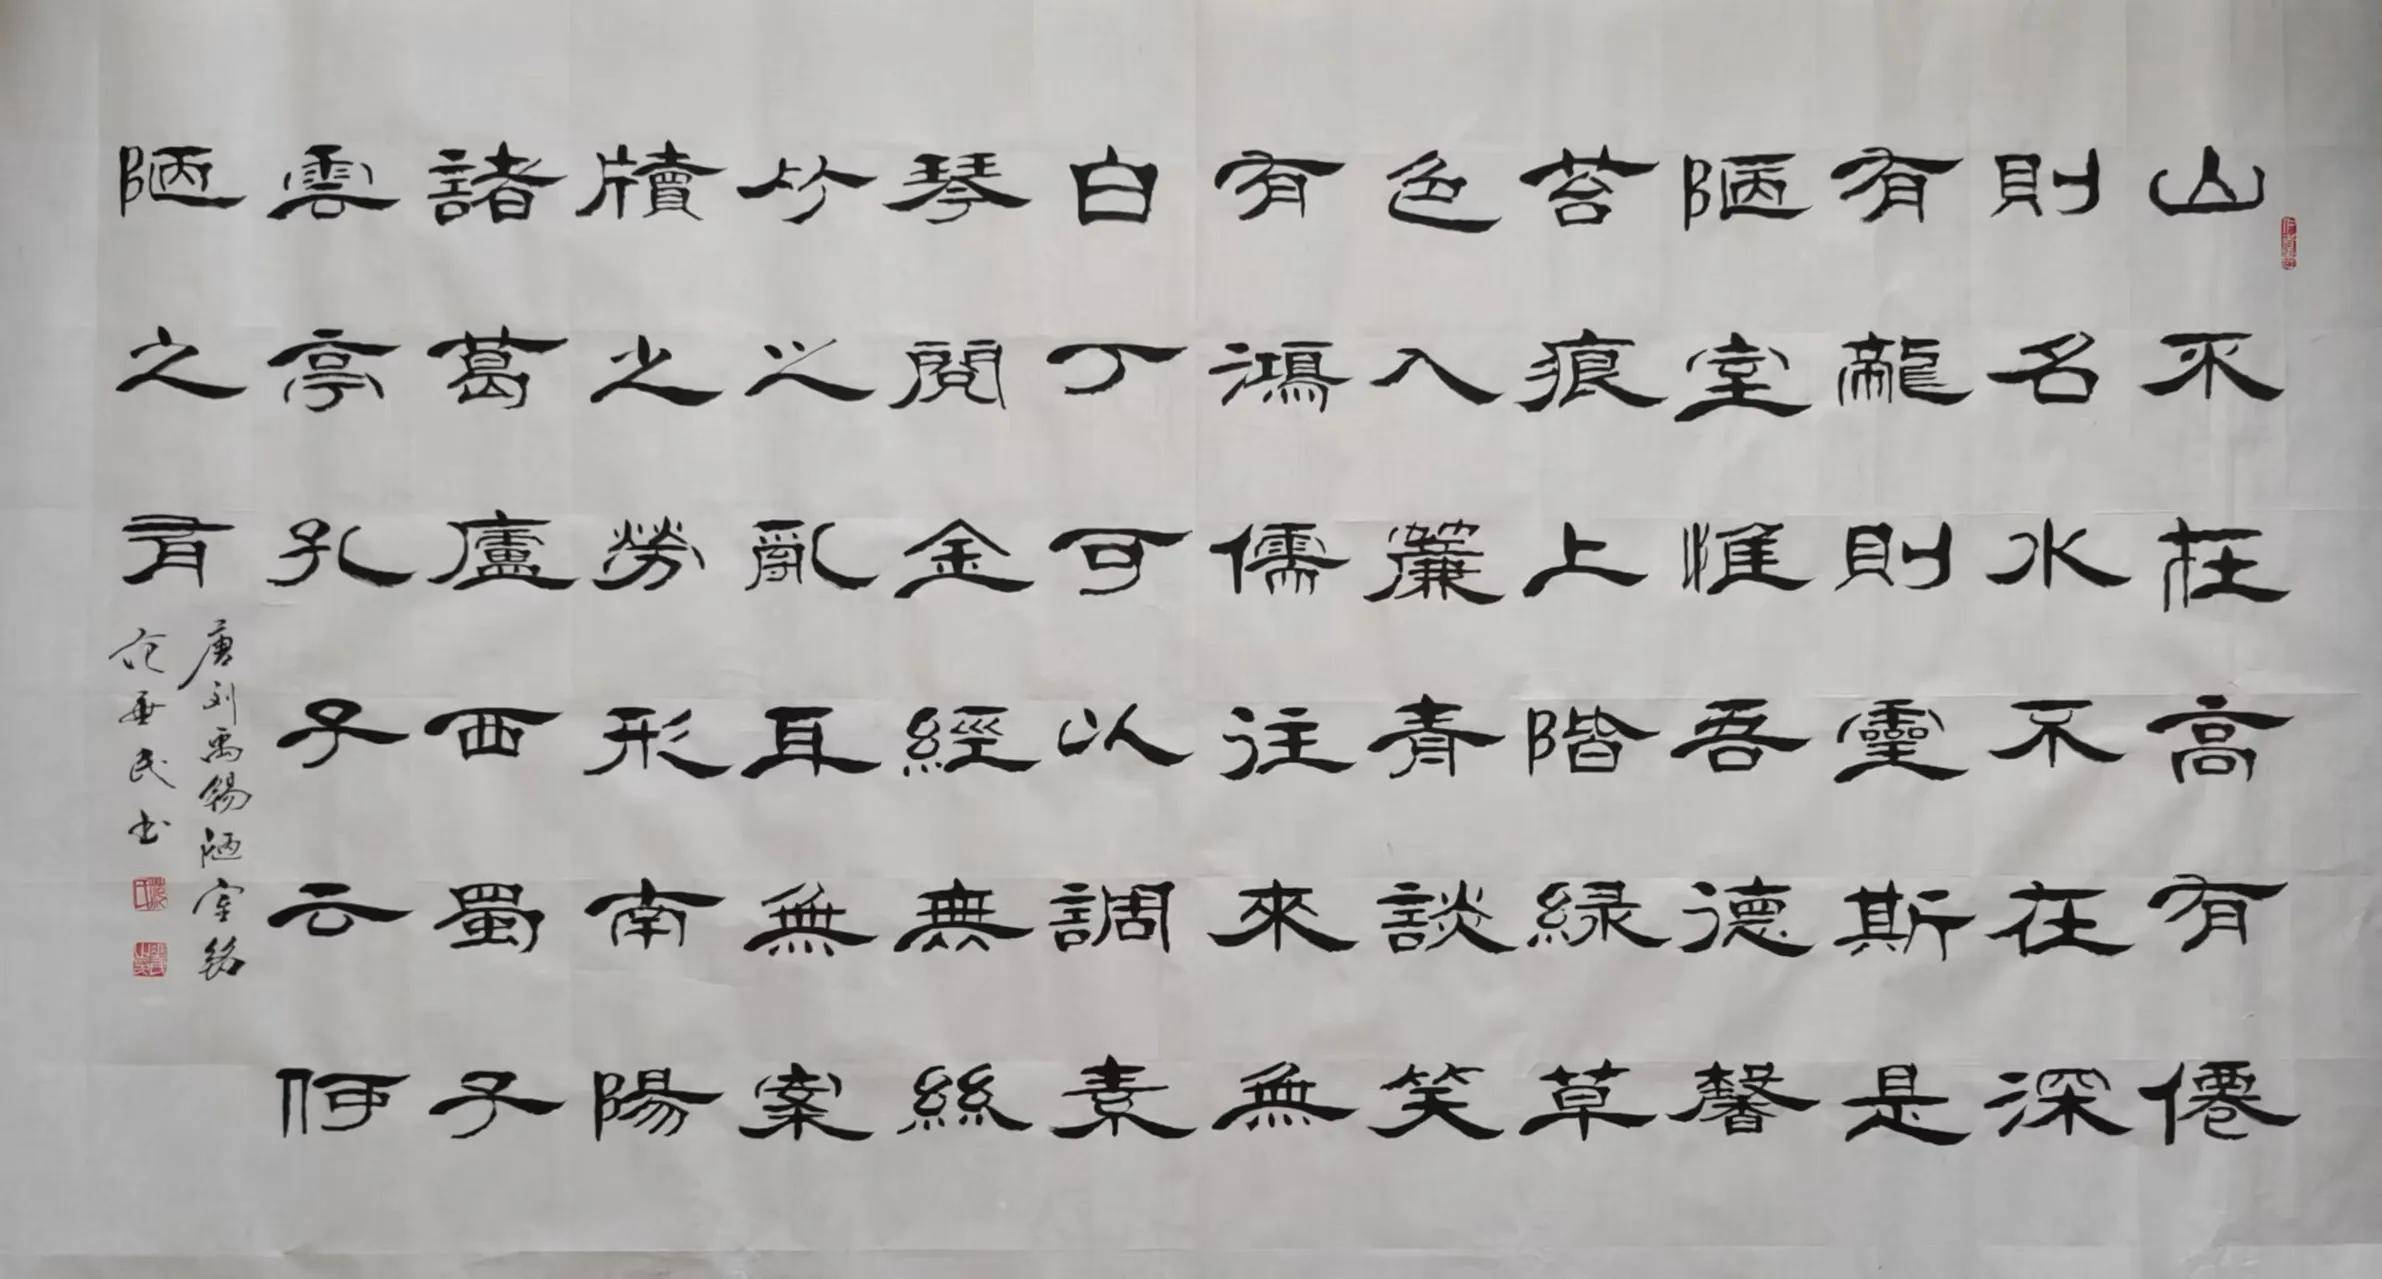 山不在高有僊
則名水不在深
有龍則靈斯是
陋室惟吾德馨
苔痕上階緑草
色入簾青談笑
有鴻儒往來無
白丁可以調素
琴閱金經無絲
竹之亂耳無案
牘之勞形南陽
諸葛廬西蜀子
雲亭孔子云何
陋之有
唐刘禹錫陋室銘
范民书